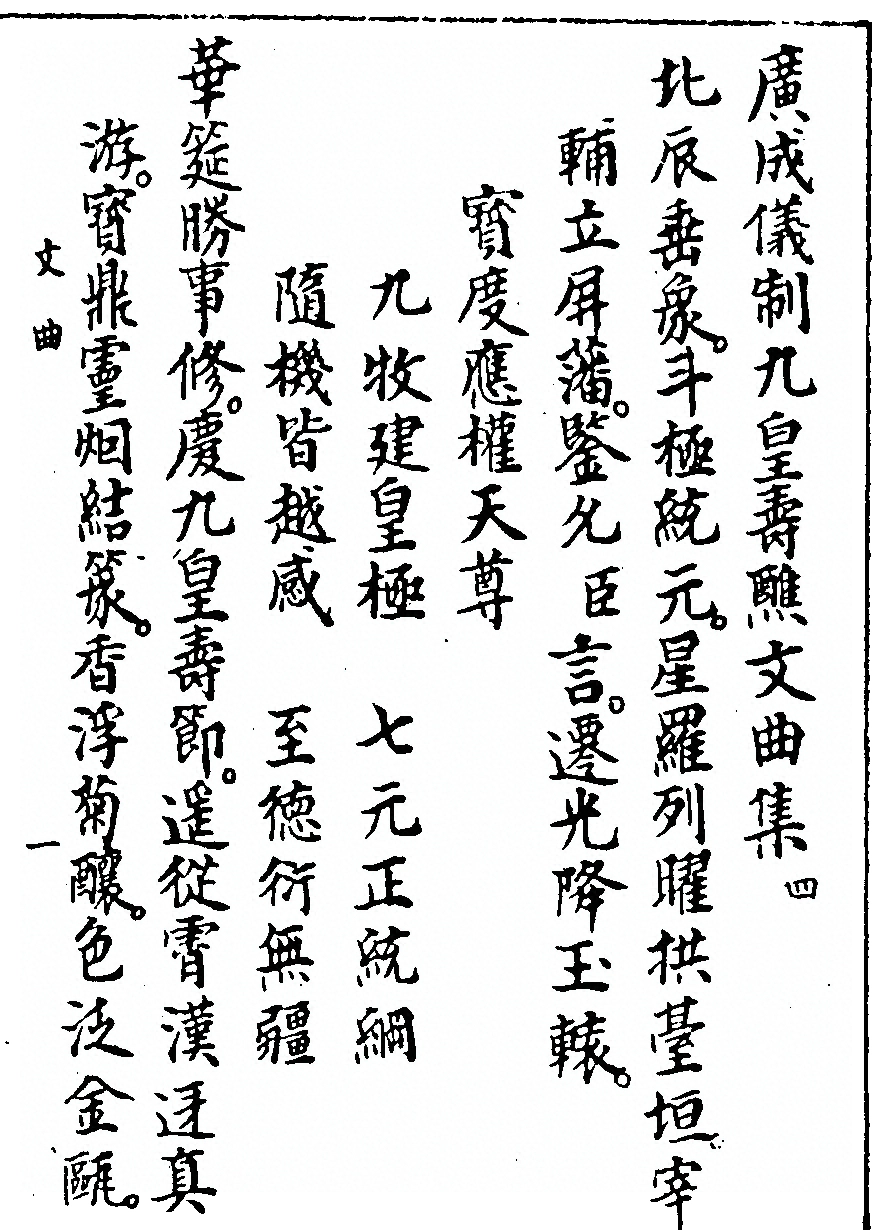 廣成儀制九皇壽醮文曲集 四
北辰垂象。斗極統元。星羅列曜拱臺垣。宰
輔立屏藩。鑒允 臣 言。遷光降玉轅。
寶度應權天尊
九牧建皇極 七元正統綱
隨機皆越感 至德衍無疆
華筵勝事修。慶九皇壽節。遥從霄漢迓真
游。寶鼎靈烟結篆。香浮菊釀。色泛金甌。
文曲 一